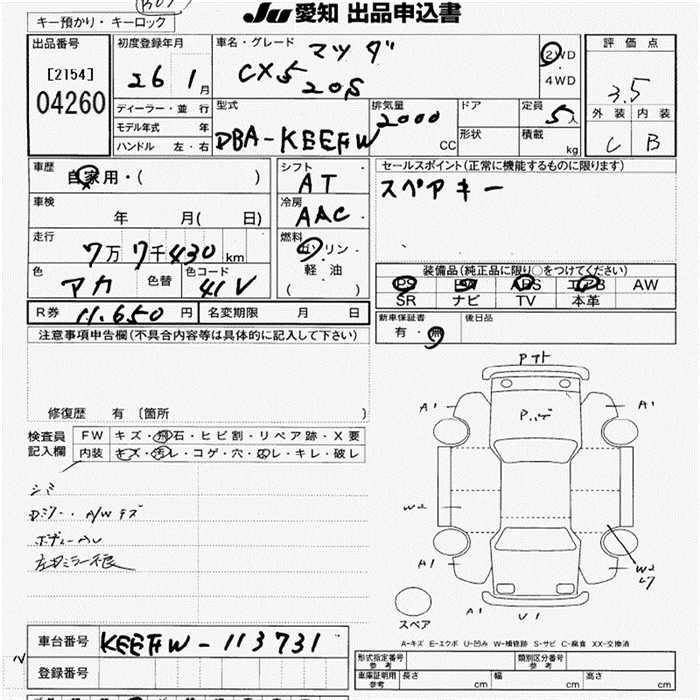 Ju 愛知 出品申込書
キー預かり・キーロック
出品番号
[2154]
04260
初度登録年月
26 年 1 月
ディーラー・並 行
モデル年式 年
ハンドル 左・右
車名・グレード マツダ
CX5 20S
型式
DBA-KEEFW
排気量
2000
CC
ドア
形状
定員
5人
積載
kg
2WD
4WD
評価点
3.5
外装 内装
C B
車歴
自家用・( )
車検
年 月( 日)
走行
7万7千430km
色
アカ
色替
色コード
41V
シフト
AT
冷房
AAC
燃料
ガソリン
軽油
( )
R券 11.650 円
名変期限 月 日
セールスポイント(正常に機能するものに限ります)
スペアキー
装備品(純正品に限り○をつけてください)
PS PW ABS エアB AW
SR ナビ TV 本革
新車保証書
有・無
後日品
注意事項申告欄(不具合内容等は具体的に記入して下さい)
修復歴 有 〔箇所 〕
検査員
記入欄
FW キズ・飛石・ヒビ割・リペア跡・X要
内装 キズ・汚レ・コゲ・穴・凹レ・キレ・破レ
シミ
A/Wキズ
左ミラー不良
Pガラ
A1 A1
W2
A1
W2
A1 U1
スペア
A-キズ E-エクボ U-凹み W-補修跡 S-サビ C-腐食 XX-交換済
車台番号 KEEFW-113731
登録番号
形式指定番号
参考
類別区分番号
参考
車庫証明用
参考
長さ cm 幅 cm 高さ cm